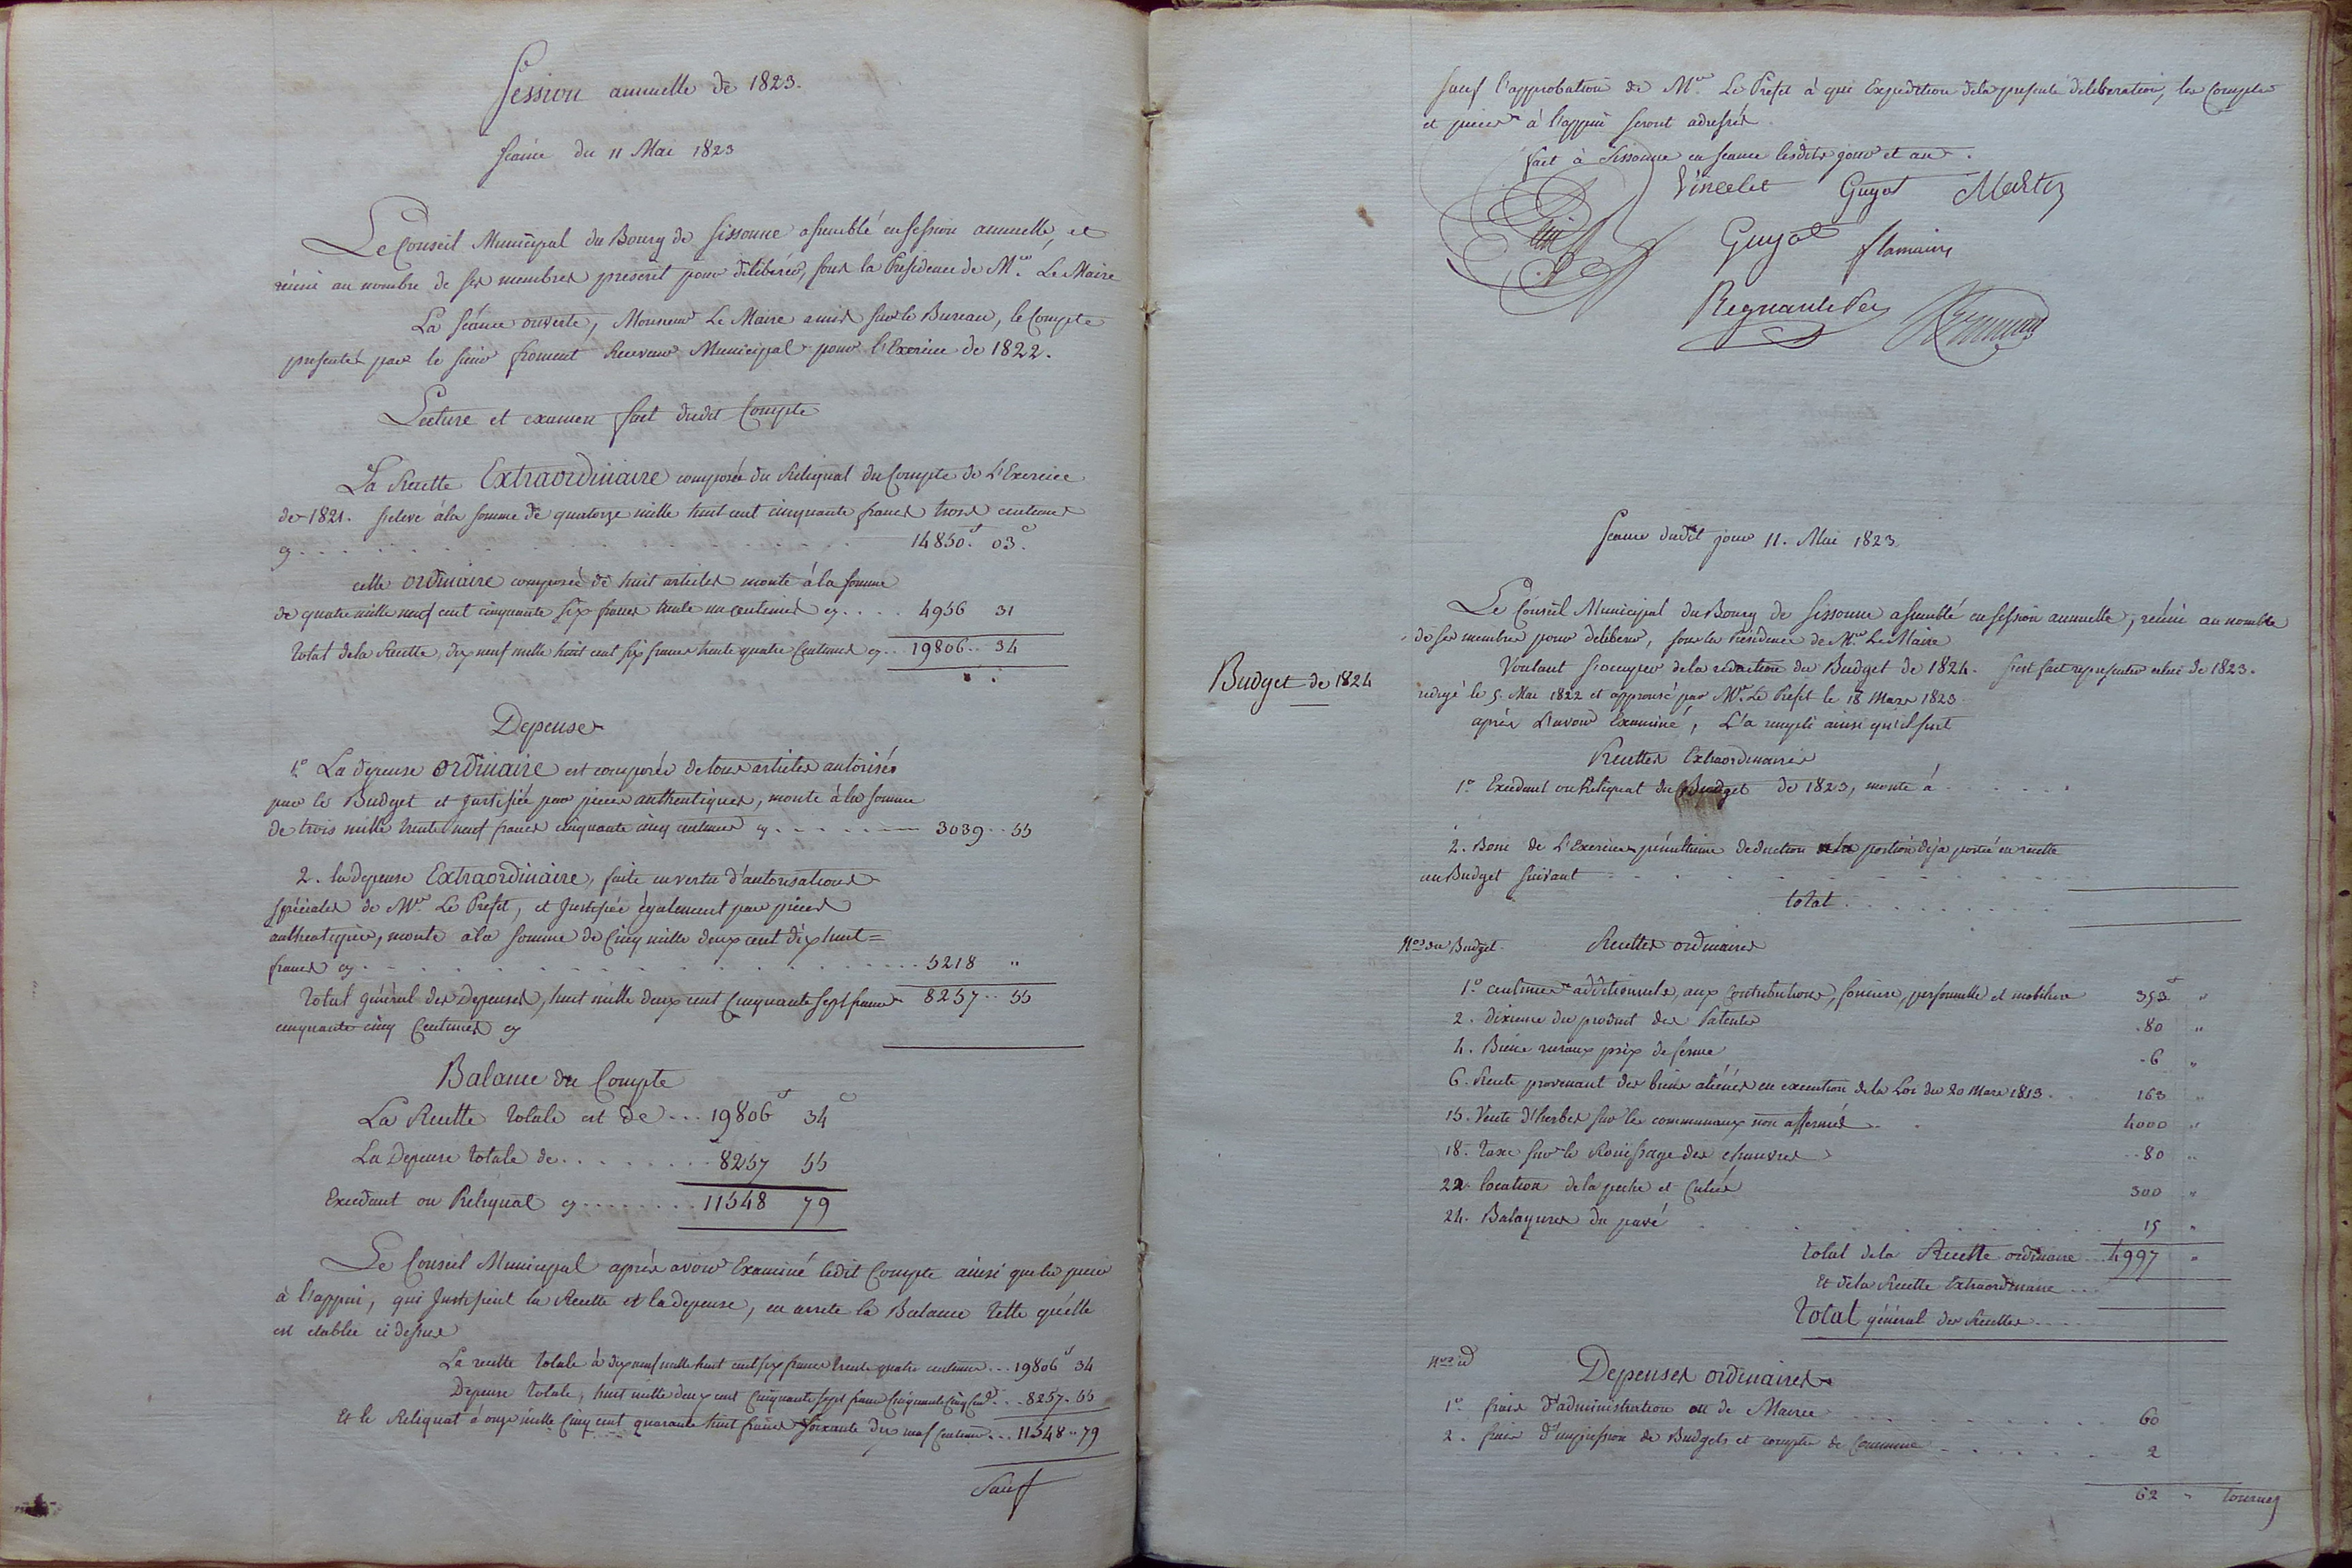 Session annuelle de 1823.
Séance du 11 Mai 1823
Le Conseil Municipal du Bourg de Sissonne assemblé en session annuelle, et
réuni au nombre de ses membres prescrit pour délibérer, sous la Présidence de Mr. Le Maire
La séance ouverte, Monsieur Le Maire a mis sur le Bureau, le Compte
présenté par le sieur froment Receveur Municipal pour l'Exercice de 1822.
Lecture et examen fait dudit Compte
La Recette Extraordinaire composée du Reliquat du Compte de L'Exercice
de 1821. s'eleve à la somme de quatorze mille huit cent cinquante francs trois centimes
cy . . . . 14850.f 03.c
celle ordinaire composée de huit articles monte à la somme
de quatre mille neuf cent cinquante six francs trente un centimes cy . . . . 4956 31
Total de la Recette, dix neuf mille huit cent six francs trente quatre Centimes cy . . 19806 . . 34
Depenses
1.° La depense ordinaire est composée de tous articles autorisés
par le Budget et Justifiée par pieces authentiques, monte à la somme
de trois mille trente neuf francs cinquante cinq centimes cy . . . . 3039 . . 55
2. la depense Extraordinaire, faite en vertu d'autorisations
spéciales de Mr. Le Préfet, et Justifiée également par pièces
authentiques, monte à la somme de Cinq mille deux cent dix huit =
francs cy . . . . 5218 "
Total général des Depenses, huit mille deux cent Cinquante sept francs 8257 . . 55
cinquante cinq Centimes cy
Balance du Compte
La Recette totale est de . . . 19806f 34c
La Depense totale de . . . . 8257 55
Excedant ou Reliquat cy . . . . 11548 79
Le Conseil Municipal après avoir Examiné ledit Compte ainsi que les pieces
à l'appui, qui Justifient la Recette et la depense, en arrete la Balance telle qu'elle
est etablie ci dessus
La recette totale à dix neuf mille huit cent six francs trente quatre centimes . . . 19806f 34
Depense totale, huit mille deux cent Cinquante sept francs Cinquante Cinq Cent . . . 8257 . 55
Et le Reliquat à onze mille Cinq cent quarante huit francs Soixante dix neuf Centimes . . . 11548 " 79
Sauf
sauf l'approbation de Mr. Le Préfet à qui Expedition de la presente déliberation, les Comptes
et pieces à l'appui seront adressés.
fait à Sissonne en seance lesdits jour et an.
Vincelet Guyot Martin
Guyot flamain
Regnault
Séance dudit jour 11. Mai 1823
Le Conseil Municipal du Bourg de Sissonne assemblé en session annuelle, réuni au nombre
de ses membres pour deliberer, sous la Présidence de Mr. Le Maire
Budget de 1824
Voulant s'occuper de la redaction du Budget de 1824. s'est fait representer celui de 1823.
redigé le 5. Mai 1822 et approuvé par Mr. Le Prefet le 18 Mars 1823
après L'avoir Examiné, L'a rempli ainsi qu'il suit
Recettes Extraordinaires
1.° Excedent ou Reliquat du Budget de 1823, monte à . . . .
2. Boni de L'Exercice pénultieme deduction de la portion deja portée en recette
au Budget suivant . . . .
total . . . .
Nos du Budget. Recettes ordinaires
1.° centimes additionnels, aux Contributions, fonciere, personnelle et mobiliere 353f "
2. dixieme du produit des Patentes 80 "
4. Biens ruraux prix de ferme 6 "
6. Rente provenant des biens aliénés en execution de la Loi du 20 Mars 1813 . . . 163 "
15. Vente d'herbes sur les communaux non affermés 4000 "
18. Taxe sur le Rouissage des chanvres 80 "
22. location de la peche et 300 "
24. Balayures du pavé . . . . 15 "
total de la Recette ordinaire . . 4997 "
Et de la Recette Extraordinaire . . .
Total général des Recettes . . . .
Nos id Depenses ordinaires
1.° frais d'administration ou de Mairie . . . . 60
2. frais d'impression de Budgets et compte de Commune . . . . 2
62 " tournez